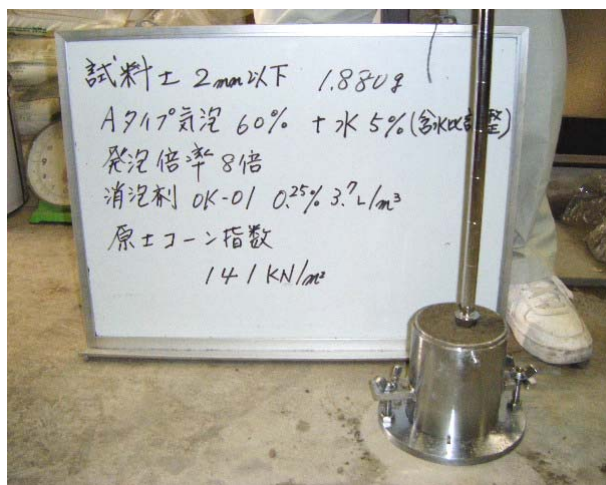 試料土 2mm以下 1.880g
Aタイプ気泡 60% +水 5%(含水比調整)
発泡倍率 8倍
消泡剤 OK-01 0.25% 3.7L/m³
原土コーン指数
141KN/m²